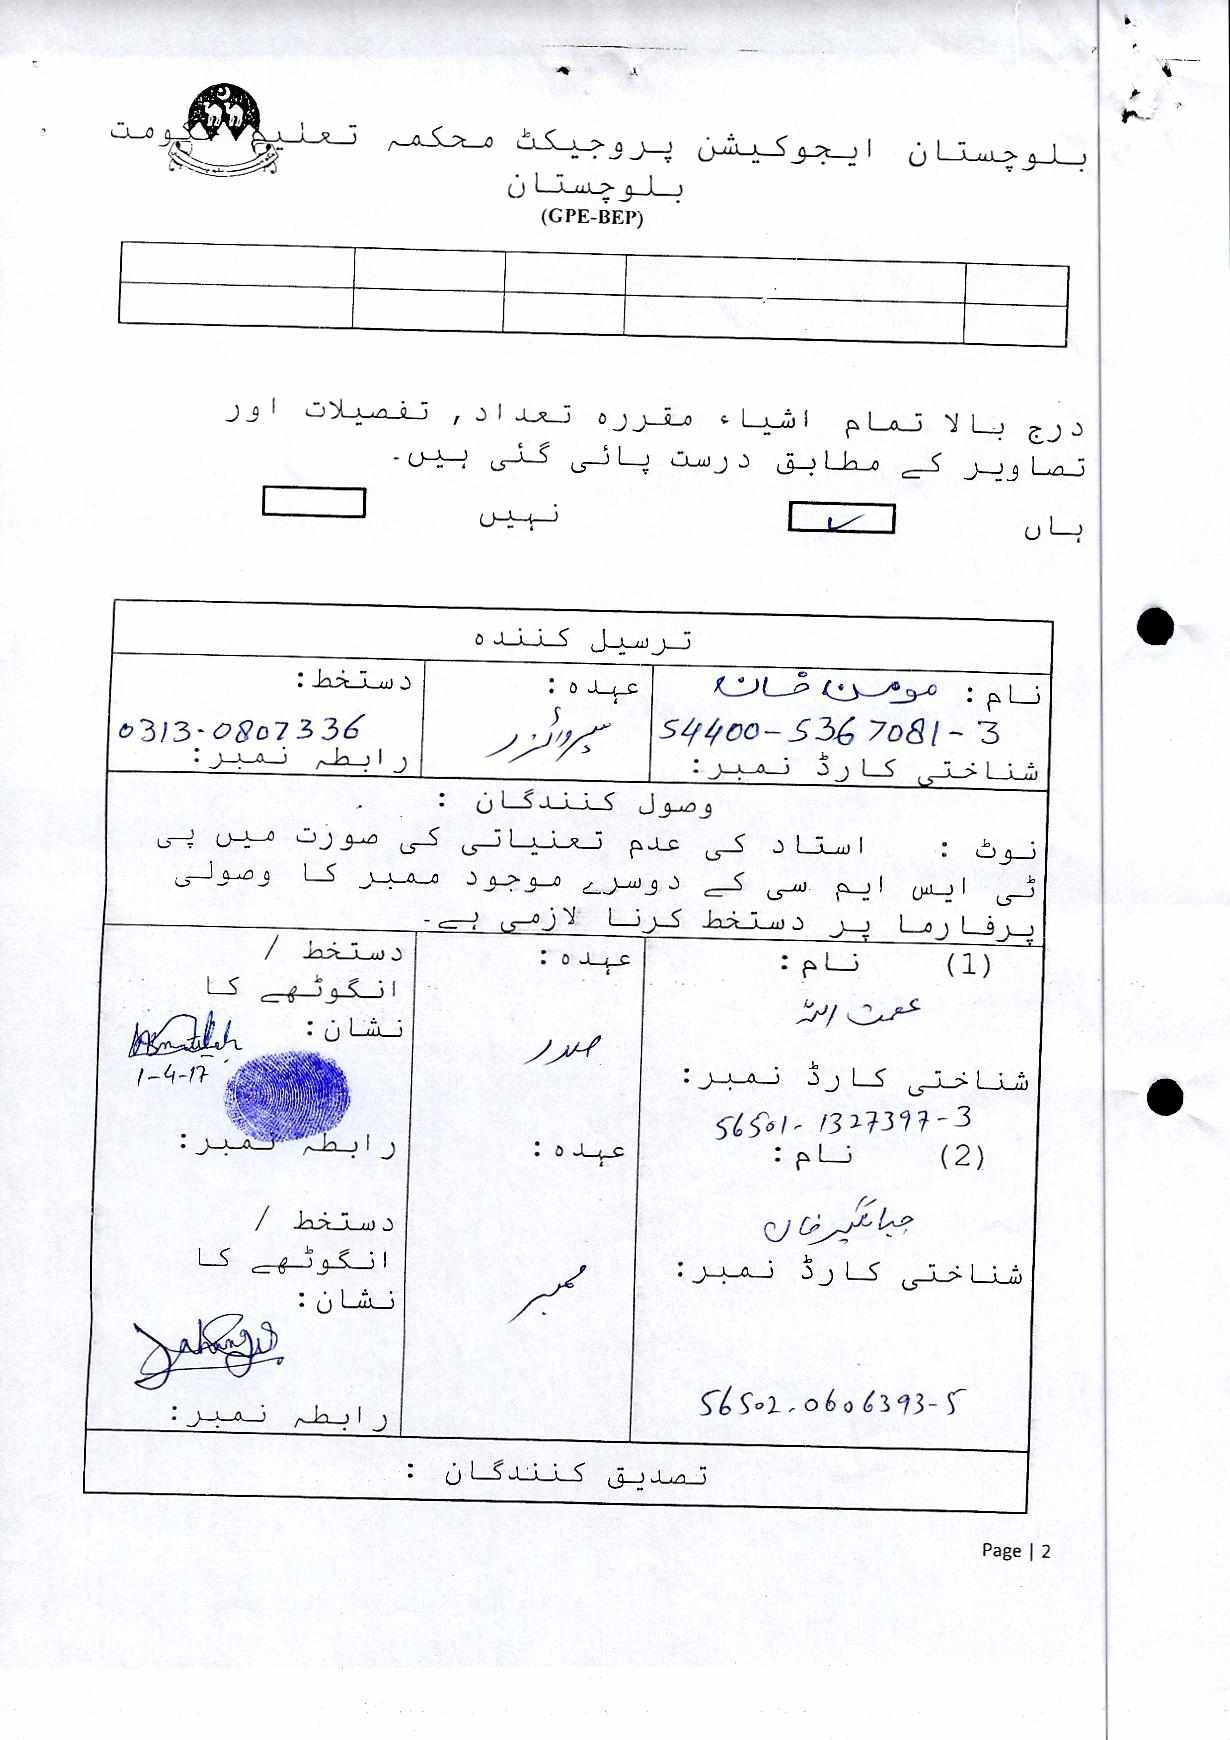 بلوچستان ایجوکیشن پروجیکٹ محکمہ تعلیم حکومت
بلوچستان
(GPE-BEP)
درج بالا تمام اشیاء مقررہ تعداد, تفصیلات اور
تصاویر کے مطابق درست پائی گئی ہیں۔
ہاں ✓ نہیں
ترسیل کنندہ
نام: مومن خان عہدہ: دستخط:
54400-5367081-3 سپروائزر 0313-0807336
شناختی کارڈ نمبر: رابطہ نمبر:
وصول کنندگان :
نوٹ : استاد کی عدم تعنیاتی کی صورت میں پی
ٹی ایس ایم سی کے دوسرے موجود ممبر کا وصولی
پرفارما پر دستخط کرنا لازمی ہے۔
(1) نام: عہدہ: دستخط /
انگوٹھے کا
نشان:
عصمت اللہ صدر Asmatullah
1-4-17
شناختی کارڈ نمبر:
56501-1327397-3
رابطہ نمبر:
(2) نام: عہدہ:
دستخط /
جہانگیر خان
انگوٹھے کا
شناختی کارڈ نمبر: ممبر نشان:
Jahangir
56502-0606393-5
رابطہ نمبر:
تصدیق کنندگان :
Page | 2